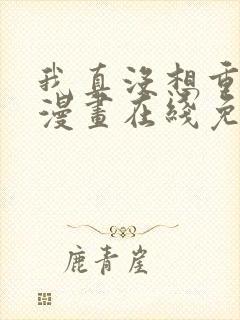 我真没想重
漫畫在綫免
鹿青崖